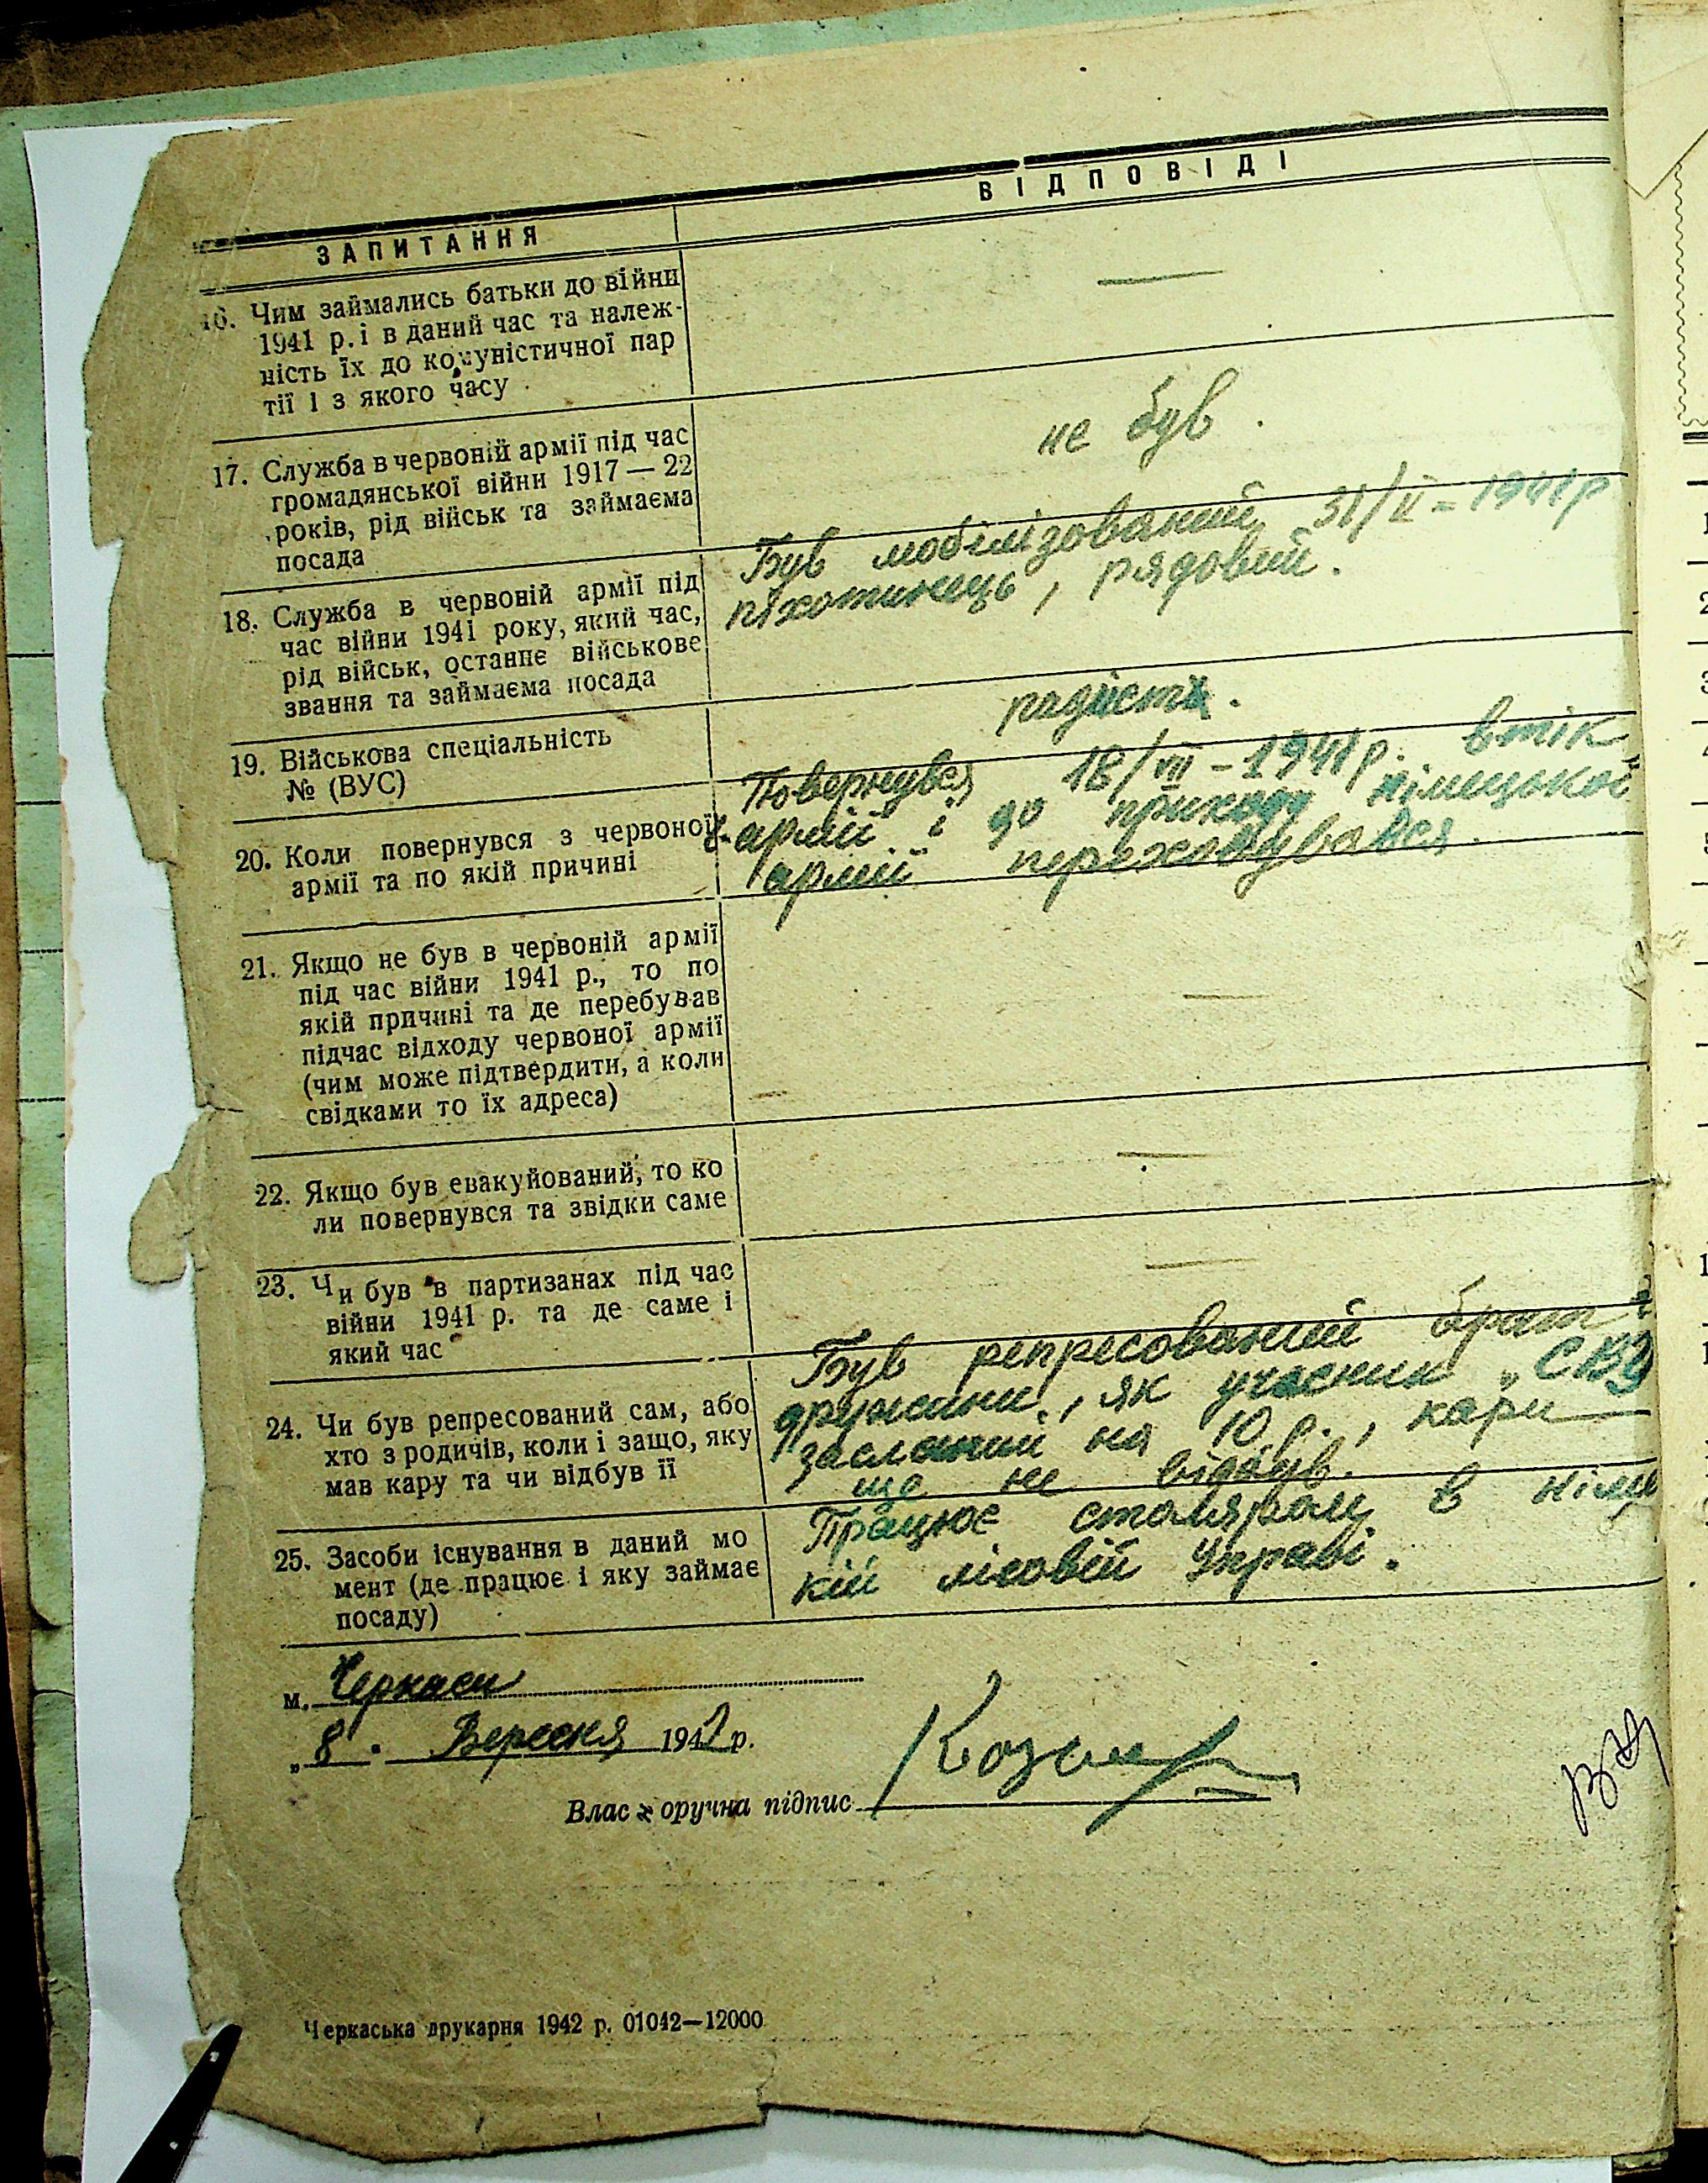 ЗАПИТАННЯ
ВІДПОВІДІ
16. Чим займались батьки до війни
1941 р. і в даний час та належ-
ність їх до комуністичної пар
тії і з якого часу
—
17. Служба в червоній армії під час
громадянської війни 1917 — 22
років, рід військ та займаєма
посада
не був.
18. Служба в червоній армії під
час війни 1941 року, який час,
рід військ, останнє військове
звання та займаєма посада
Був мобілізований 31/ІІ - 1941р
піхотинець, рядовий.
19. Військова спеціальність
№ (ВУС)
радист.
20. Коли повернувся з червоної
армії та по якій причині
Повернувся 18/VII - 1941р. втік
з армії і до приходу німецької
армії переховувався.
21. Якщо не був в червоній армії
під час війни 1941 р., то по
якій причині та де перебував
підчас відходу червоної армії
(чим може підтвердити, а коли
свідками то їх адреса)
—
22. Якщо був евакуйований, то ко
ли повернувся та звідки саме
—
23. Чи був в партизанах під час
війни 1941 р. та де саме і
який час
—
24. Чи був репресований сам, або
хто з родичів, коли і защо, яку
мав кару та чи відбув її
Був репресований брат
дружини, як учасник „СВУ
засланий на 10 р., кари
ще не відбув.
25. Засоби існування в даний мо
мент (де працює і яку займає
посаду)
Працює столяром в німе
кій лісовій Управі.
м. Черкаси
„8" Вересня 1942 р.
Власноручна підпис
Черкаська друкарня 1942 р. 01042—12000